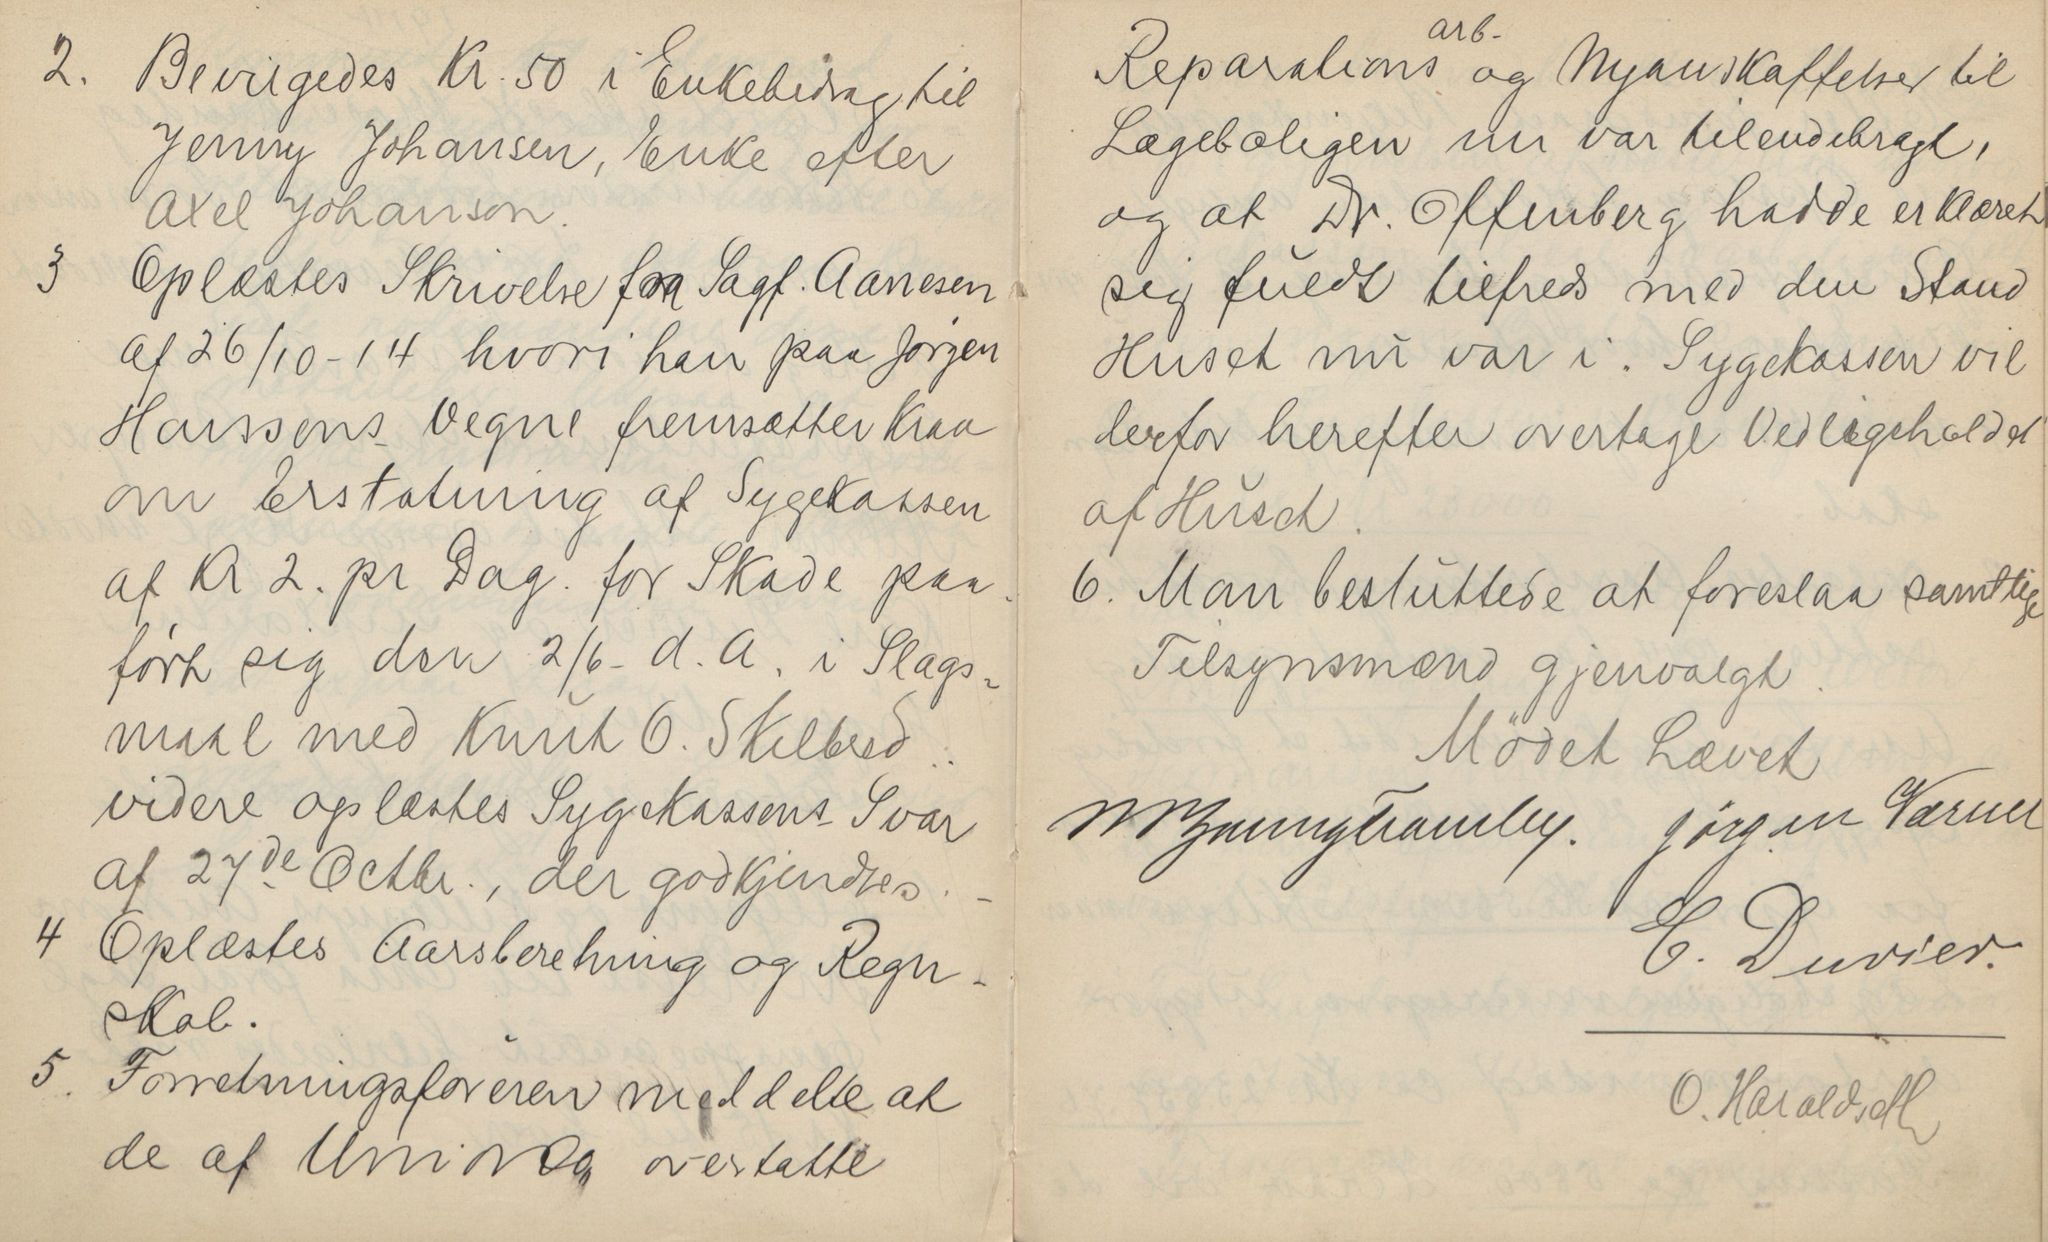 2. Bevilgedes Kr. 50 i Enkebidrag til
Jenny Johansen, Enke efter
Axel Johanson.
3 Oplæstes Skrivelse fra Sagf. Aanesen
af 26/10-14 hvori han paa Jørgen
Hanssens Vegne fremsætter Krav
om Erstatning af Sygekassen
af Kr 2. pr Dag. for Skade paa-
ført sig den 2/6- d. A. i Slags-
maal med Knut O. Skilbred.
videre oplæstes Sygekassens Svar
af 27de Octbr., der godkjendtes. -
4 Oplæstes Aarsberetning og Regn-
skab.
5. Forretningsføreren meddelte at
de af Union Co, overtatte
Reparations arb- og Nyanskaffelser til
Lægeboligen nu var tilendebragt,
og at Dr. Offenberg hadde erklæret
sig fuldt tilfreds med den Stand
Huset nu var i. Sygekassen vil
derfor herefter overtage Vedligeholdet
af Huset.
6. Man besluttede at foreslaa samtlige
Tilsynsmænd gjenvalgt.
Mödet hævet
Jörgen Værner
C. Duvier.